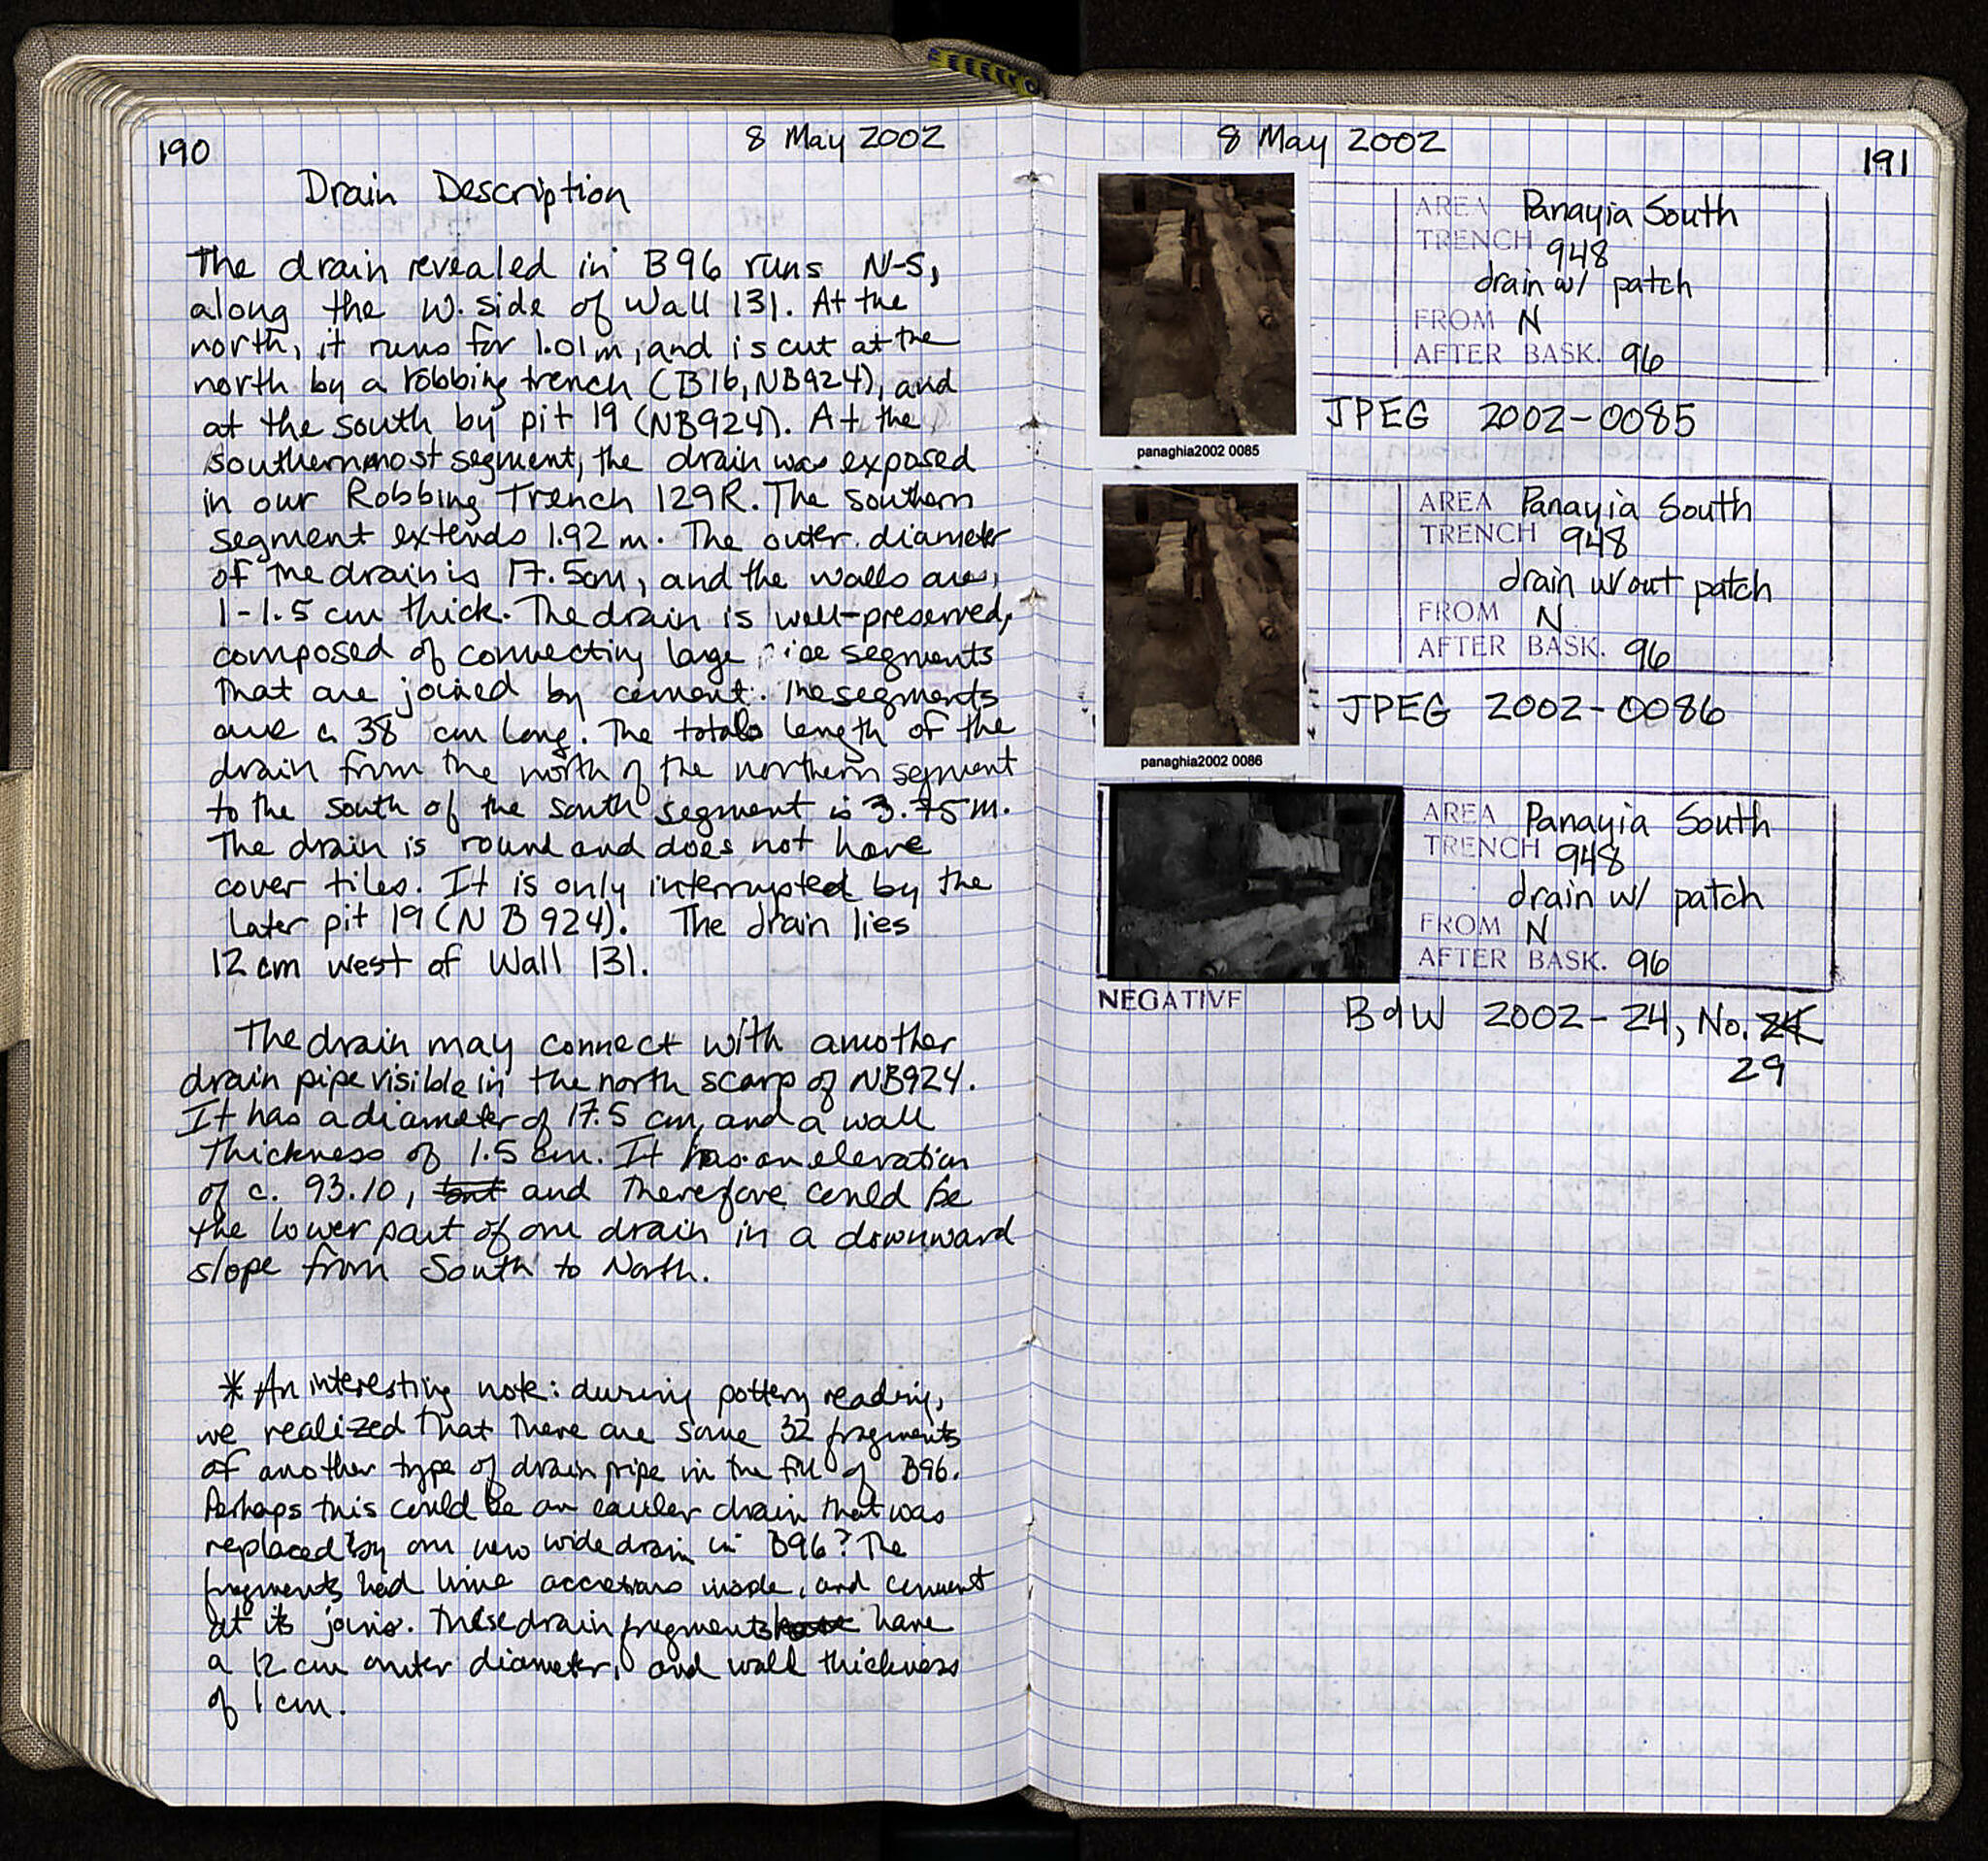 190
8 May 2002
Drain Description
The drain revealed in B96 runs N-S,
along the W. side of Wall 131. At the
north, it runs for 1.01m, and is cut at the
north by a robbing trench (B16, NB924), and
at the south by pit 19 (NB924). At the
southernmost segment, the drain was exposed
in our Robbing Trench 129R. The southern
segment extends 1.92 m. The outer diameter
of the drain is 17.5cm, and the walls are
1-1.5 cm thick. The drain is well-preserved,
composed of connecting large pipe segments
that are joined by cement. The segments
are c. 38 cm long. The total length of the
drain from the north of the northern segment
to the south of the south segment is 3.75m.
The drain is round and does not have
cover tiles. It is only interrupted by the
later pit 19 (NB924). The drain lies
12 cm west of Wall 131.
The drain may connect with another
drain pipe visible in the north scarp of NB924.
It has a diameter of 17.5 cm, and a wall
thickness of 1.5 cm. It has an elevation
of c. 93.10, but and therefore could be
the lower part of our drain in a downward
slope from South to North.
* An interesting note: during pottery reading,
we realized that there are some 32 fragments
of another type of drain pipe in the fill of B96.
Perhaps this could be an earlier drain that was
replaced by our new wide drain in B96? The
fragments had lime accretions inside, and cement
at its joins. These drain fragments have have
a 12 cm outer diameter, and wall thickness
of 1 cm.
8 May 2002
191
AREA Panayia South
TRENCH 948
drain w/ patch
FROM N
AFTER BASK. 96
JPEG 2002-0085
panaghia2002 0085
AREA Panayia South
TRENCH 948
drain w/out patch
FROM N
AFTER BASK. 96
JPEG 2002-0086
panaghia2002 0086
AREA Panayia South
TRENCH 948
drain w/ patch
FROM N
AFTER BASK. 96
NEGATIVE
B&W 2002-24, No. 24
29